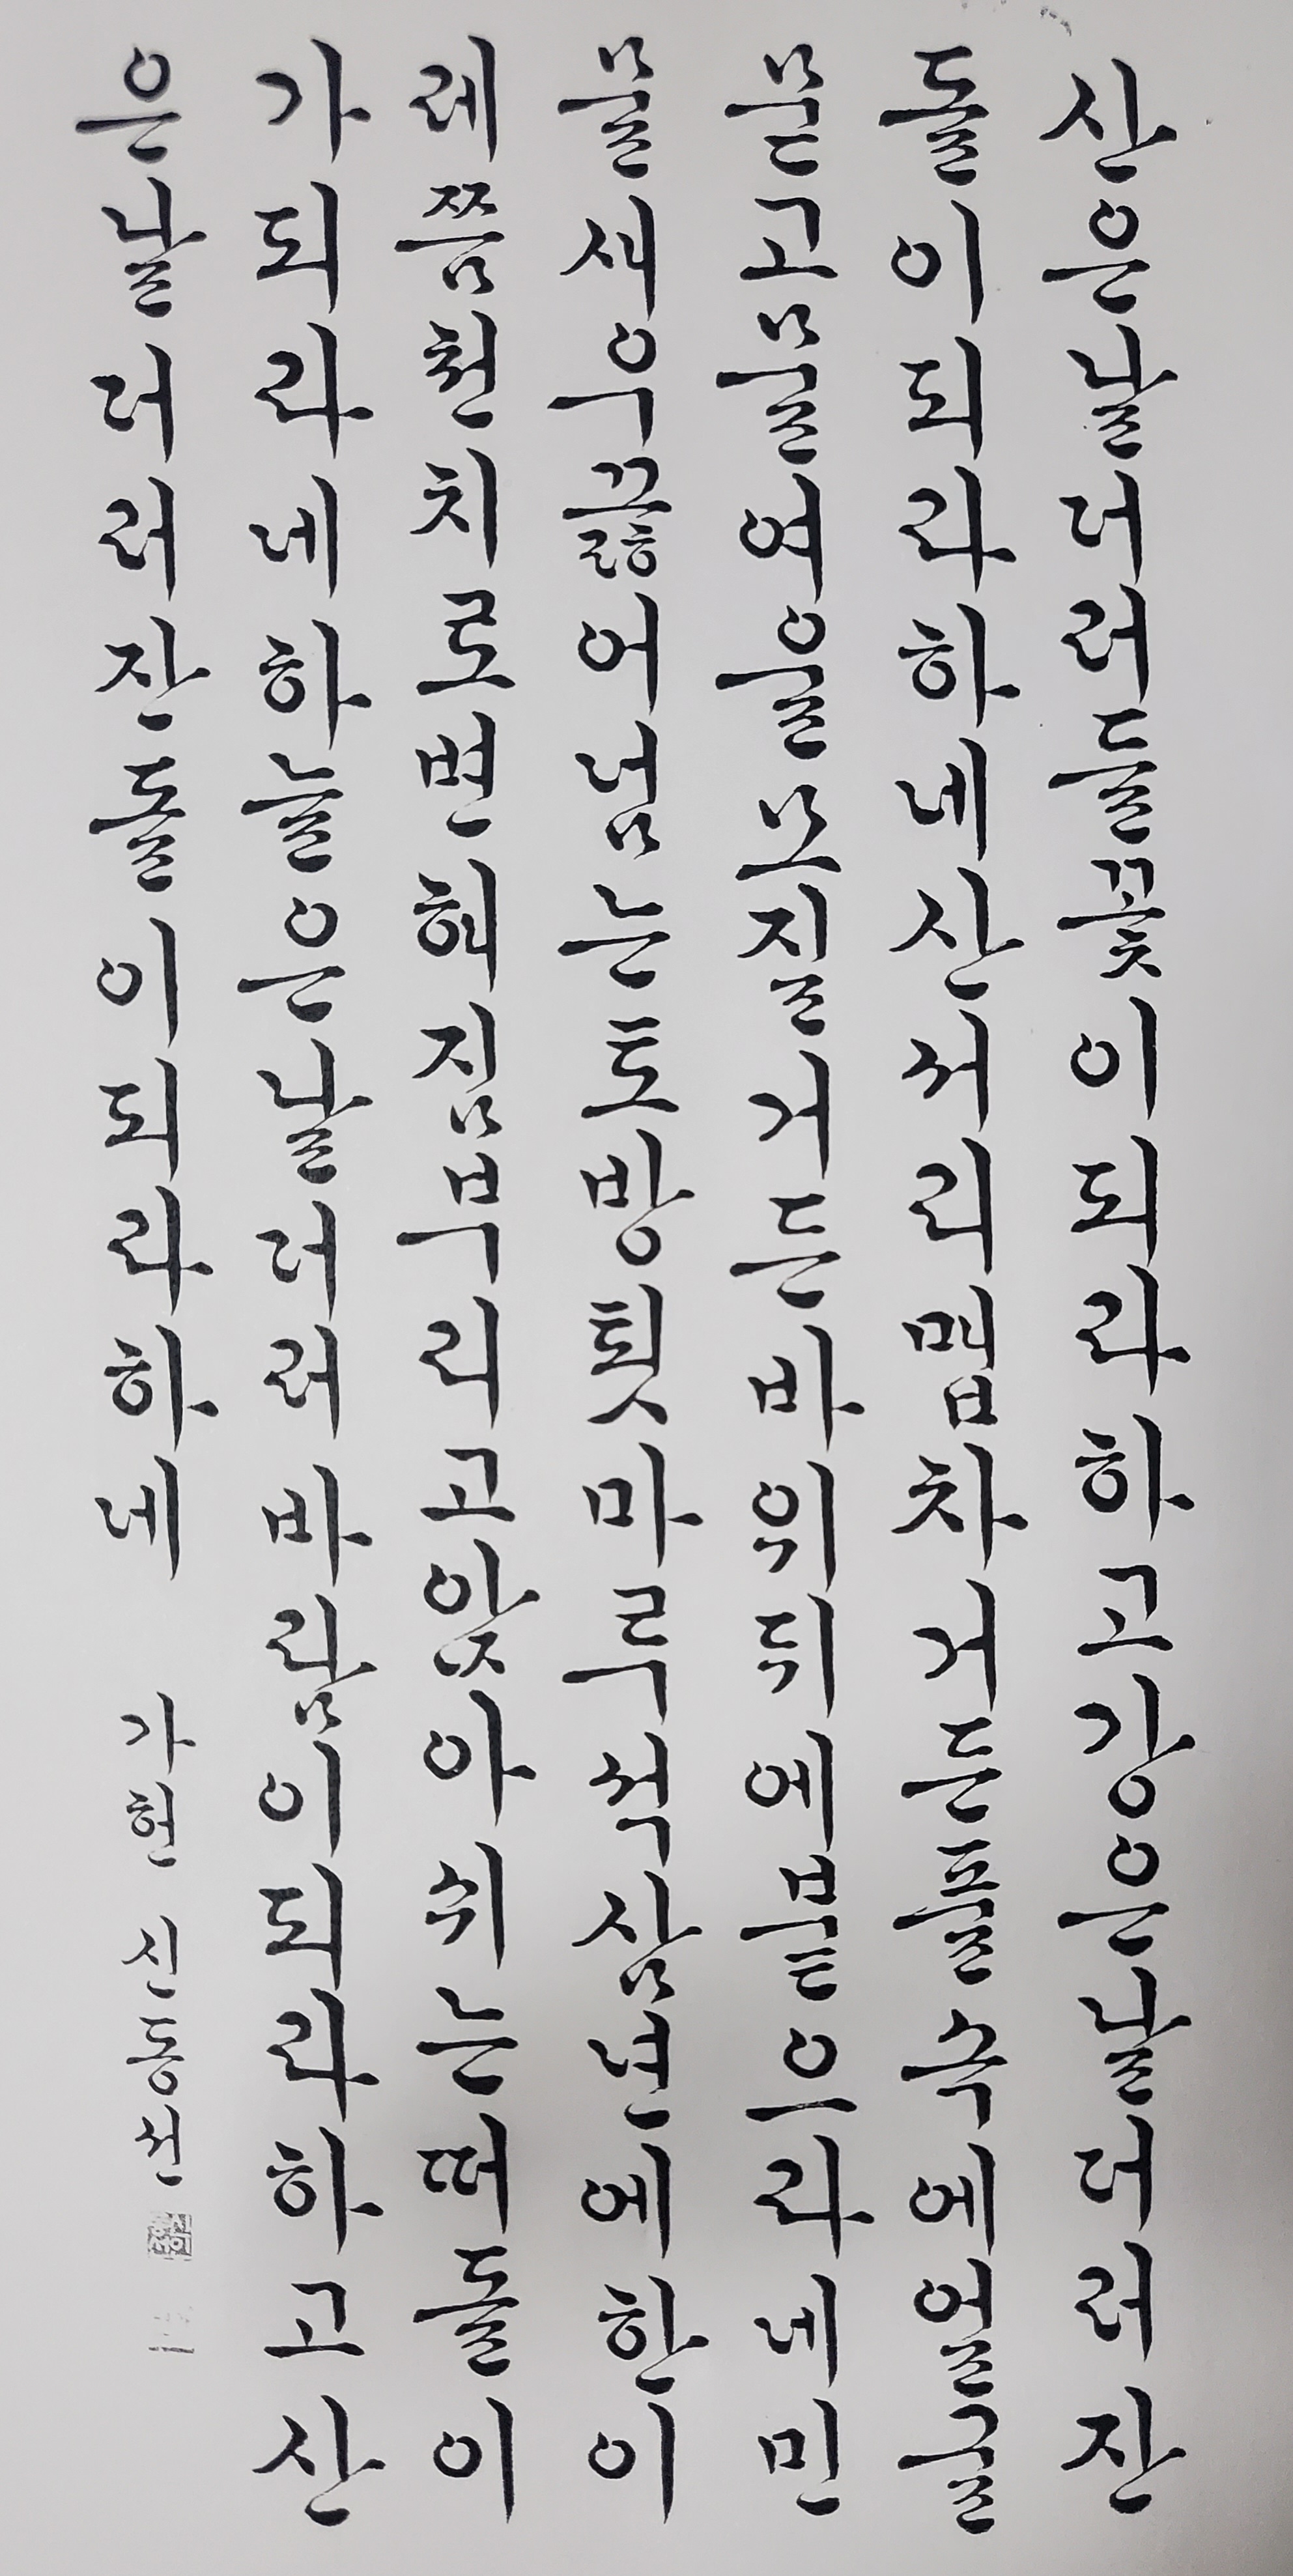 산은날더러들꽃이되라하고강은날더러잔
돌이되라하네산서리맵차거든풀속에얼굴
묻고물여울모질거든바위뒤에붙으라네민
물새우끓어넘는토방툇마루석삼년에한이
레쯤천치로변해짐부리고앉아쉬는떠돌이
가되라네하늘은날더러바람이되라하고산
은날더러잔돌이되라하네 가헌 신동선